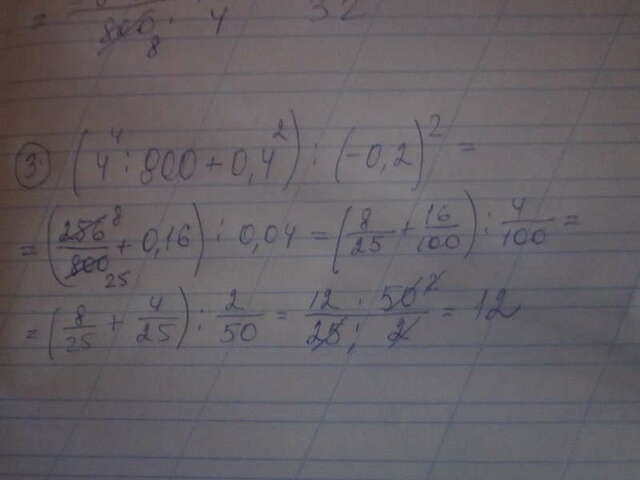 = 800 8 · 4 32
③ (4⁴ : 800 + 0,4²) : (-0,2)² =
= (256 8 / 800 25 + 0,16) : 0,04 = (8/25 + 16/100) : 4/100 =
= (8/25 + 4/25) : 2/50 = 12 · 50 2 / 25 · 2 = 12